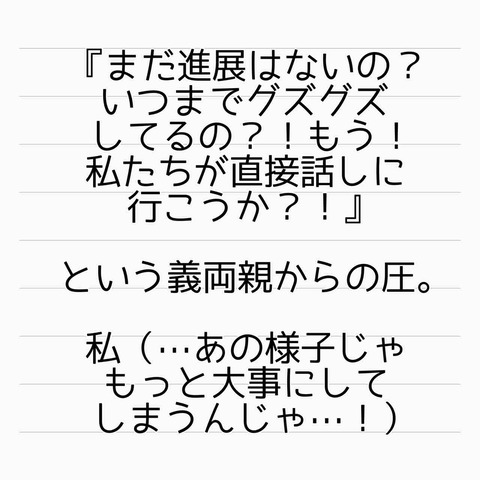 『まだ進展はないの？
いつまでグズグズ
してるの？！もう！
私たちが直接話しに
行こうか？！』
という義両親からの圧。
私（…あの様子じゃ
もっと大事にして
しまうんじゃ…！）